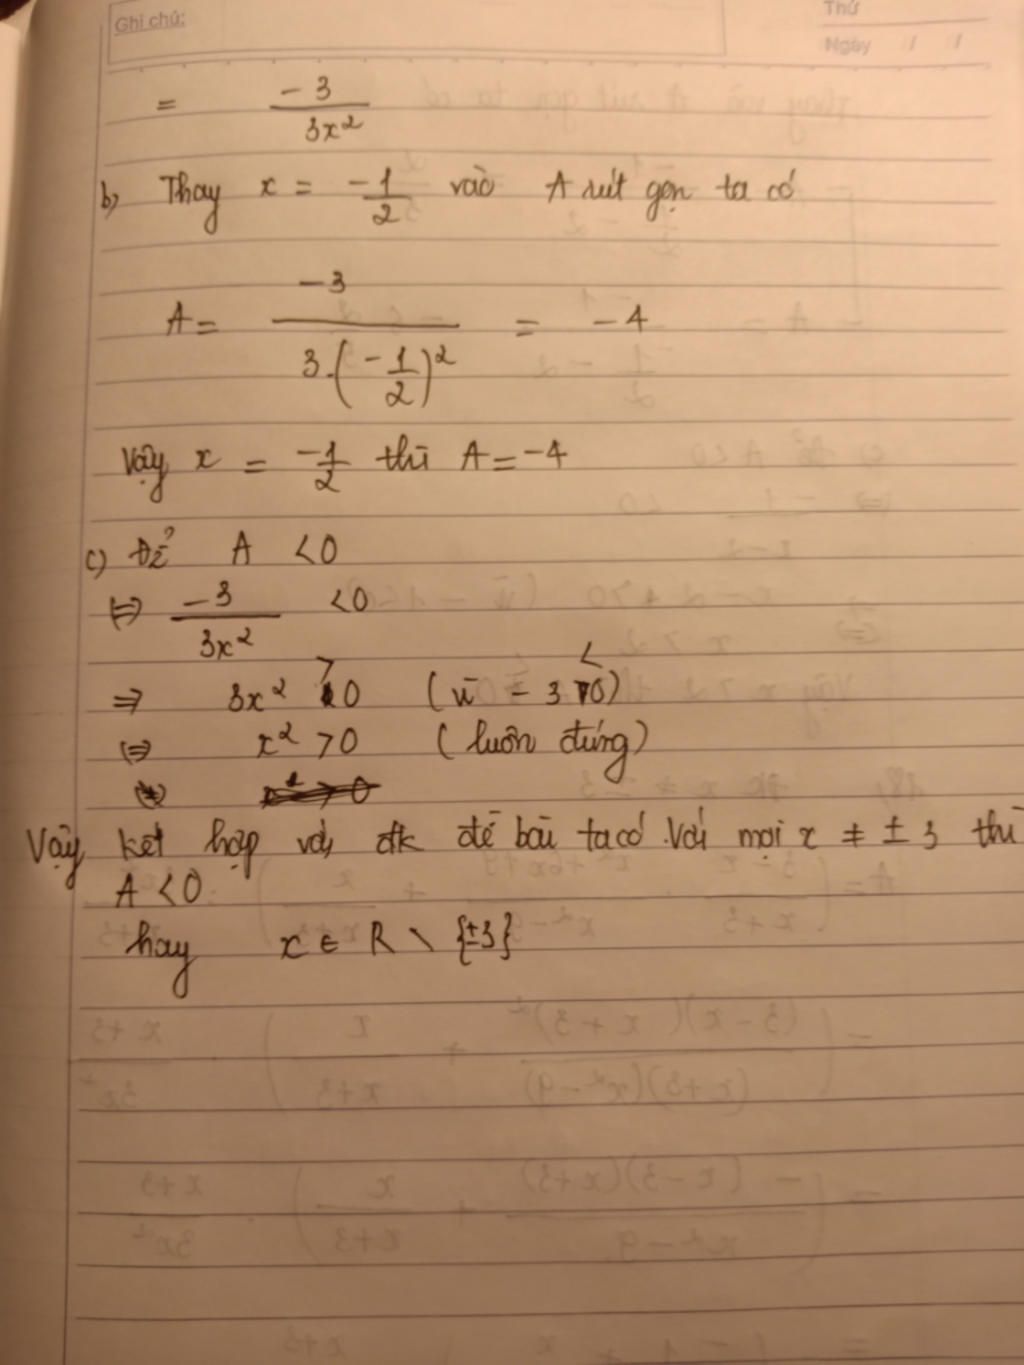 Ghi chú:
Thứ
Ngày / /
= -3/3x²
b, Thay x = -1/2 vào A rút gọn ta có
A = -3/(3.(-1/2)²) = -4
Vậy x = -1/2 thì A = -4
c) Để A < 0
(=) -3/3x² < 0
=> 3x² > 0 (vì -3 < 0)
(=) x² > 0 (luôn đúng)
Vậy kết hợp với đk đề bài ta có. Với mọi x ≠ ± 3 thì
A < 0
hay x ∈ R \ {±3}